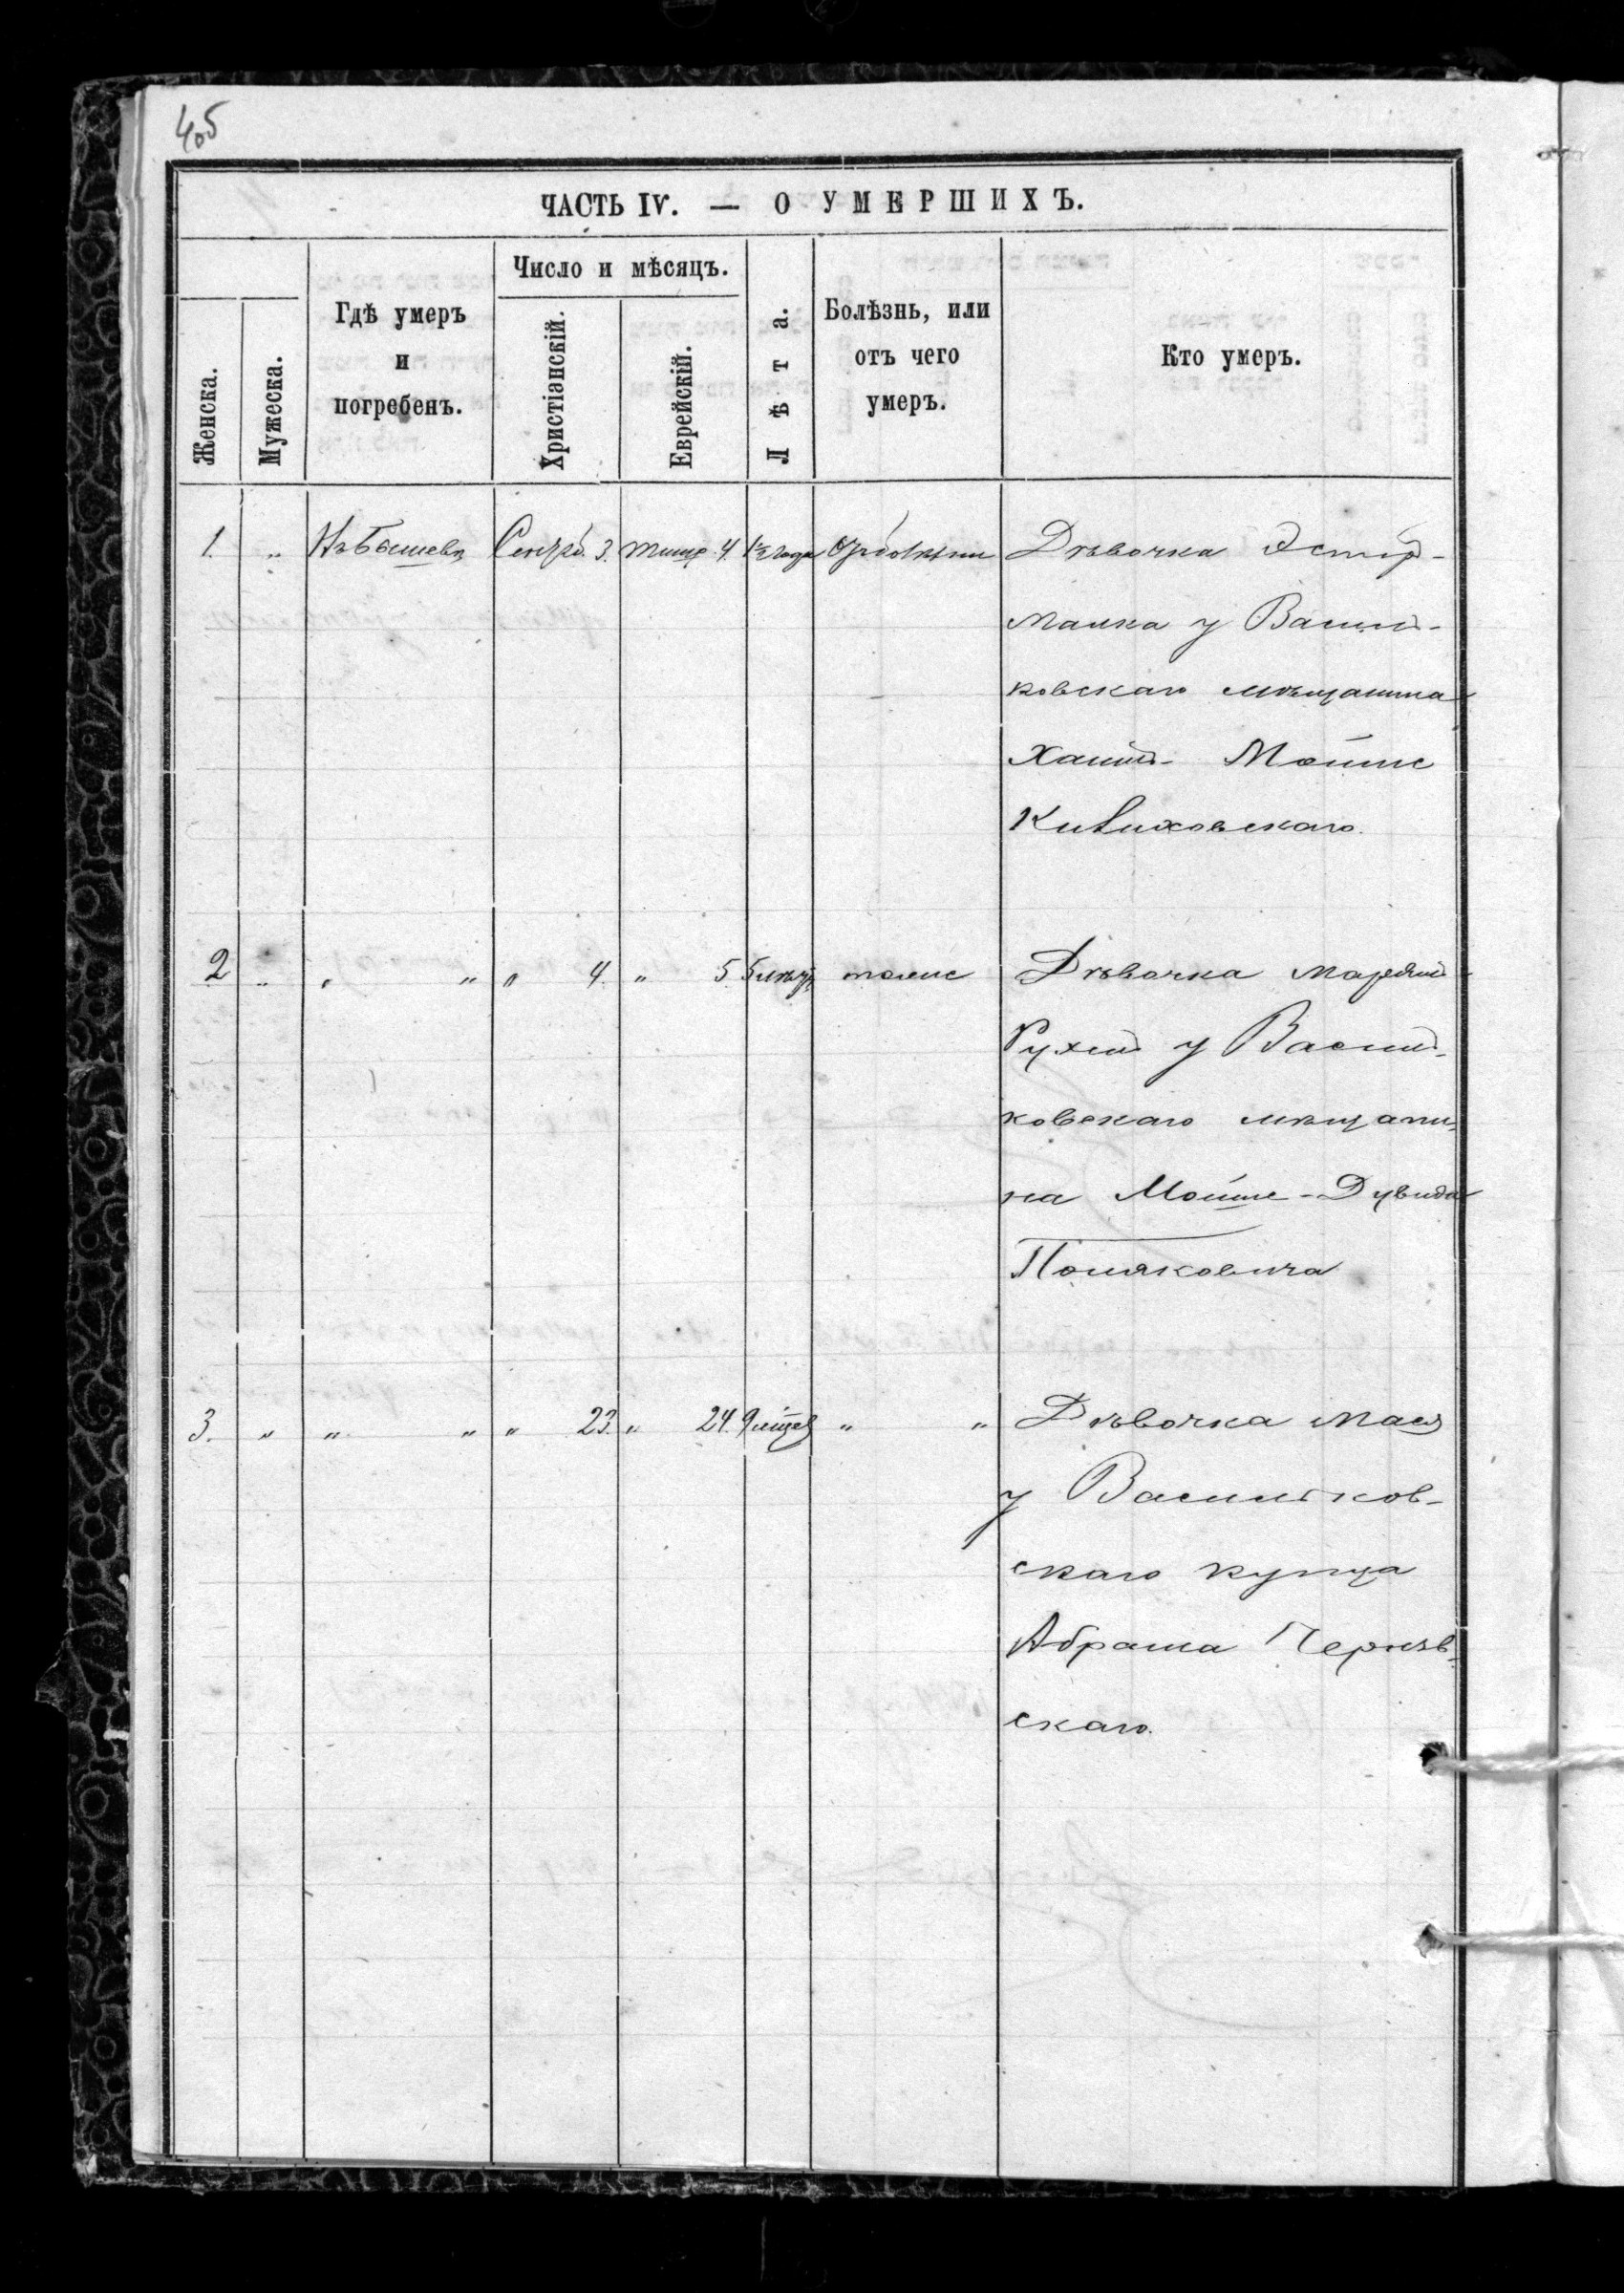 405
ЧАСТЬ IV. — О УМЕРШИХЪ.
Женска.
Мужеска.
Гдѣ умеръ
и
погребенъ.
Число и мѣсяцъ.
Христіанскій.
Еврейскій.
Лѣта.
Болѣзнь, или
отъ чего
умеръ.
Кто умеръ.
1. „ Въ Бышевѣ Сентяб. 3. тишр. 4. 1½ года Дѣвочка Эстер-
Малка у Василь-
ковскаго мѣщанина
Хаим- Мошке
2 „ „ „ „ 4. „ 5. 5 тоже Дѣвочка Марьям
Рухля у Василь-
ковскаго мѣщани-
на Мошке-Дувида
Поляковича
3. „ „ „ „ 23. „ 24. 9 „ „ Дѣвочка Мася
у Васильков-
скаго купца
Абрама Черняв-
скаго.